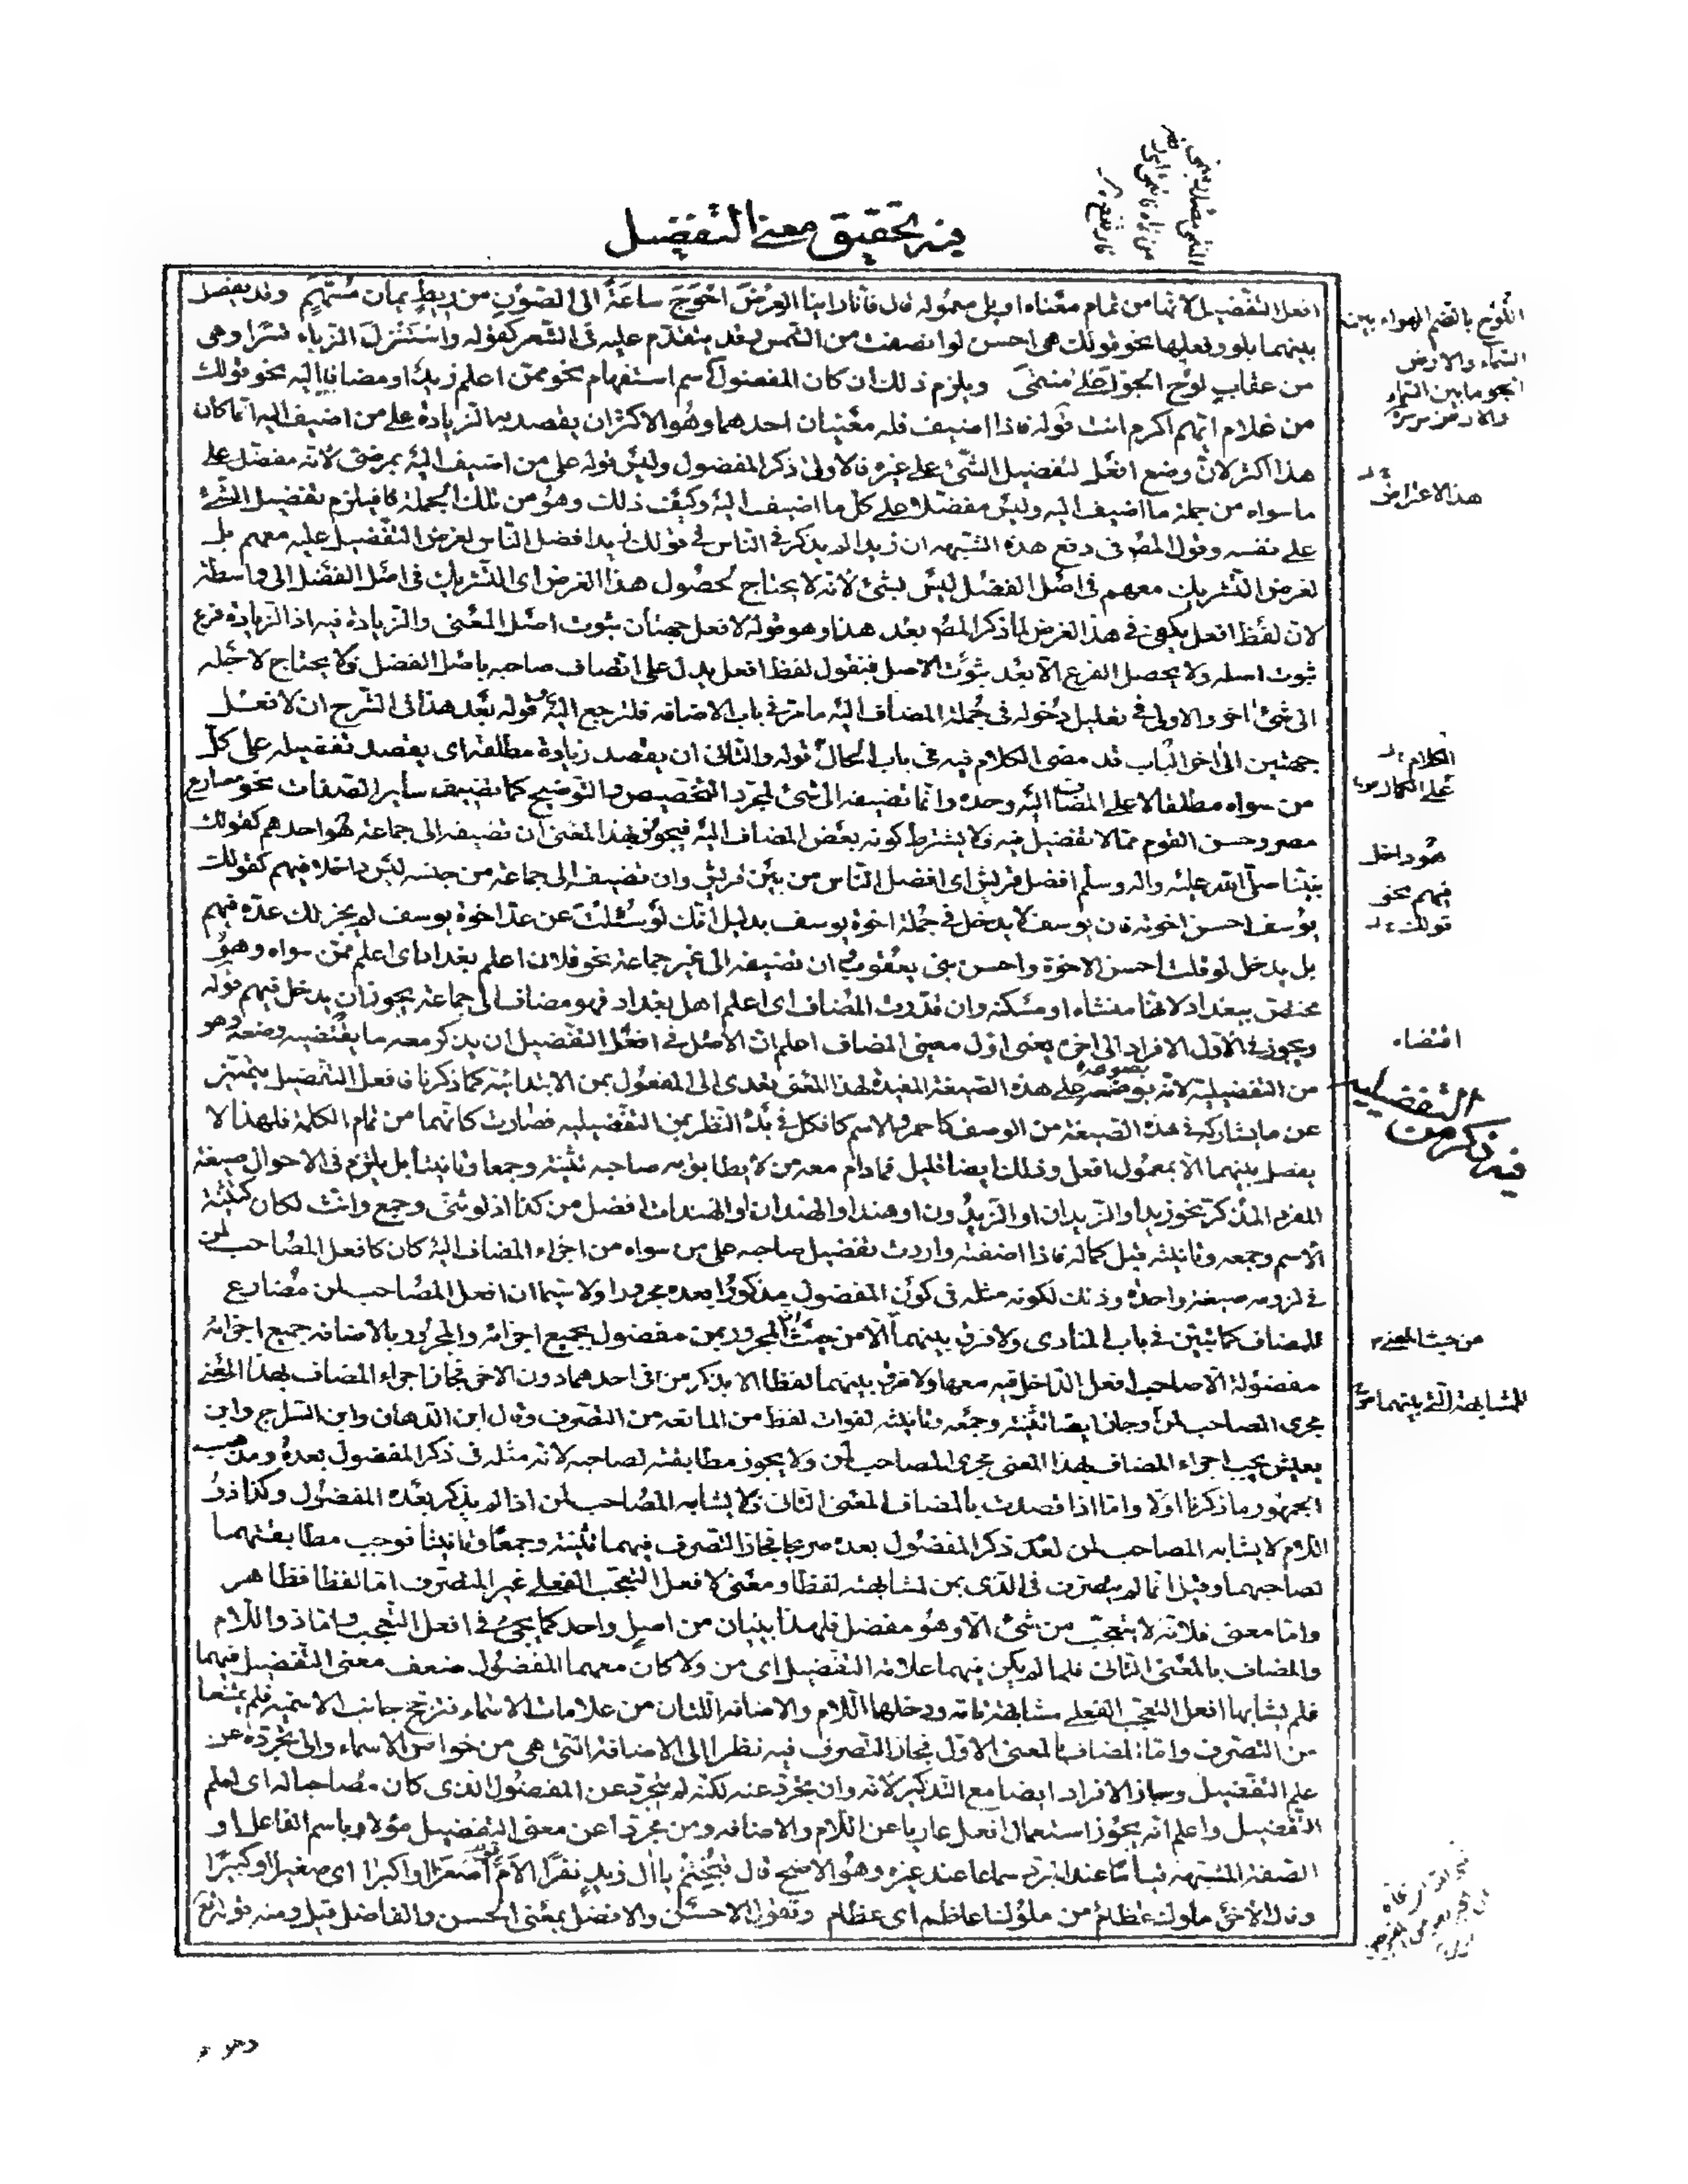 فيه تحقيق معنى التفضيل
افعل التفضيل لانها من تمام معناه او بل معموله قال فانا راينا العرض احوج ساعة الى الصون من ريط يمان مسهم وقد يفصل
بينهما بلو وفعلها نحو قولك هى احسن لو انصفت من الشمس وقد يتقدم عليه فى الشعر كقوله واستنزل الزباء قسرا وهى
من عقاب لوح الجو اعلى منتمى ويلزم ذلك ان كان المفضول اسم استفهام نحو ممن اعلم زيد او مضافا اليه نحو قولك
من غلام ايهم اكرم انت قوله فاذا اضيف فله معنيان احدهما وهو الاكثر ان يقصد به الزيادة على من اضيف اليه انما كان
هذا اكثر لان وضع افعل لتفضيل الشئ على غيره فالاولى ذكر المفضول وليس قوله على من اضيف اليه بمرضى لانه مفضل على
ما سواه من جملة ما اضيف اليه وليس مفضلا على كل ما اضيف اليه وكيف ذلك وهو من تلك الجملة فيلزم تفضيل الشئ
على نفسه وقول المص فى دفع هذه الشبهه ان زيدا لم يذكر فى الناس فى قولك زيد افضل الناس لغرض التفضيل عليه معهم بل
لغرض التشريك معهم فى اصل الفضل ليس بشئ لانه لا يحتاج لحصول هذا الغرض اى التشريك فى اصل الفضل الى واسطة
لان لفظ افعل يكفى فى هذا الغرض لما ذكر المص بعد هذا وهو قوله لافعل جهتان ثبوت اصل المعنى والزيادة فيه اذ الزيادة فرع
ثبوت اصله ولا يحصل الفرع الا بعد ثبوت الاصل فنقول لفظ افعل يدل على اتصاف صاحبه باصل الفضل ولا يحتاج لاجله
الى شئ اخر والاولى فى تعليل دخوله فى جملة المضاف اليه ما مر فى باب الاضافه فلترجع اليه قوله بعد هذا فى الشرح ان لافعل
جهتين الى اخر الباب قد مضى الكلام فيه فى باب الحال قوله والثانى ان يقصد زيادة مطلقة اى يقصد تفضيله على كل
من سواه مطلقا لا على المضاف اليه وحده وانما تضيفه الى شئ لمجرد التخصيص والتوضيح كما تضيف ساير الصفات نحو مصارع
مصر وحسن القوم مما لا تفضيل فيه فلا يشترط كونه بعض المضاف اليه فيجوز بهذا المعنى ان تضيفه الى جماعة هو احدهم كقولك
نبينا صلى الله عليه واله وسلم افضل قريش اى افضل الناس من بين قريش وان تضيفه الى جماعة من جنسه ليس داخلا فيهم كقولك
يوسف احسن اخوته فان يوسف لا يدخل فى جملة اخوة يوسف بدليل انك لو سئلت عن عد اخوة يوسف لم يجز لك عده فيهم
بل يدخل لو قلت احسن الاخوة واحسن بنى يعقوب وان تضيفه الى غير جماعة نحو فلان اعلم بغداد اى اعلم ممن سواه وهو
مختص ببغداد لانها منشاءه او مسكنه وان قدرت المضاف اى اعلم اهل بغداد فهو مضاف الى جماعة يجوز ان يدخل فيهم قوله
ويجوز فى الاول الافراد الى اخره يعنى اول معنى المضاف اعلم ان الاصل فى افعل التفضيل ان يذكر معه ما يقتضيه وضعه وهو
من التفضيلية لانه بوضعه على هذه الصيغة المفيدة لهذا المعنى تعدى الى المفعول بمن الابتدائية كما ذكرنا فافعل التفضيل يتميز
عما يشاركه فى هذه الصيغة من الوصف كاحمر والاسم كافكل فى بدء النظر بمن التفضيليه فصارت كانها من تمام الكلمة فلهذا لا
يفصل بينهما الا بمعمول افعل وذلك ايضا قليل فما دام معه من لا يطابق به صاحبه تثنية وجمعا وتانيثا بل يلزم فى الاحوال صيغة
المفرد المذكر نحو زيد او الزيدان او الزيدون او هند او الهندان او الهندات افضل من كذا اذ لو ثنى وجمع وانث لكان كتثنية
الاسم وجمعه وتانيثه قبل كماله فاذا اضفته واردت تفضيل صاحبه على من سواه من اجزاء المضاف اليه كان كافعل المصاحب لمن
فى لزومه صيغة واحدة وذلك لكونه مثله فى كون المفضول مذكورا بعده مجرورا ولا سيما ان افعل المصاحب لمن مضارع
للمضاف كما تبين فى باب المنادى ولا فرق بينهما الا من حيث ان المجرور بمن مفضول بجميع اجزائه والمجرور بالاضافه جميع اجزائه
مفضولة الا صاحب افعل الداخل فيه معها ولا فرق بينهما لفظا الا بذكر من فى احدهما دون الاخر فجاز اجراء المضاف بهذا المعنى
مجرى المصاحب لمن وجاز ايضا تثنيته وجمعه وتانيثه لفوات لفظ من المانعه من التصرف وقال ابن الدهان وابن السراج وابن
يعيش يجب اجراء المضاف بهذا المعنى مجرى المصاحب لمن ولا يجوز مطابقته لصاحبه لانه مثله فى ذكر المفضول بعده ومذهب
الجمهور ما ذكرنا اولا واما اذا قصدت بالمضاف المعنى الثانى فلا يشابه المصاحب لمن اذ لم يذكر بعده المفضول وكذا ذو
اللام لا يشابه المصاحب لمن لعدم ذكر المفضول بعده صريحا فجاز التصرف فيهما تثنية وجمعا وتانيثا فوجب مطابقتهما
لصاحبهما وقيل انما لم يتصرف فى الذى بمن لمشابهته لفظا ومعنى لافعل التعجب الفعلى غير المتصرف اما لفظا فظاهر
واما معنى فلانه لا يتعجب من شئ الا وهو مفضل فلهذا يبنيان من اصل واحد كما يجئ فى افعل التعجب واما ذو اللام
والمضاف بالمعنى الثانى فلما لم يكن فيهما علامة التفضيل اى من ولا كان معهما المفضول ضعف معنى التفضيل فيهما
فلم يشابها افعل التعجب الفعلى مشابهة تامة ودخلها اللام والاضافه اللتان من علامات الاسماء فترجح جانب الاسمية فلم يمنعا
من التصرف واما المضاف بالمعنى الاول فجاز التصرف فيه نظرا الى الاضافة التى هى من خواص الاسماء والى تجرده عن
علم التفضيل وجاز الافراد ايضا مع التذكير لانه وان تجرد عنه لكنه لم يتجرد عن المفضول الذى كان مصاحبا له اى لعلم
التفضيل واعلم انه يجوز استعمال افعل عاريا عن اللام والاضافه ومن مجردا عن معنى التفضيل مؤولا باسم الفاعل او
الصفة المشبهه قياسا عند المبرد سماعا عند غيره وهو الاصح قال قبحتم يا آل زيد نفرا الام قوم اصغرا واكبرا اى صغيرا وكبيرا
وقال الاخر ملوك عظام من ملوك اعاظم اى عظام وتقول الاحسن والافضل بمعنى الحسن والفاضل قيل ومنه قوله تع
اللوح بالضم الهواء بين
السماء والارض
الجو ما بين السماء
والارض
هذا الاعتراض
الكلام
على الكمال
هو داخل
فيهم نحو
قولك
اقتضاء
فيه ذكر من التفضيليه
من حيث المعنى
للمشابهة التى بينهما
وهو